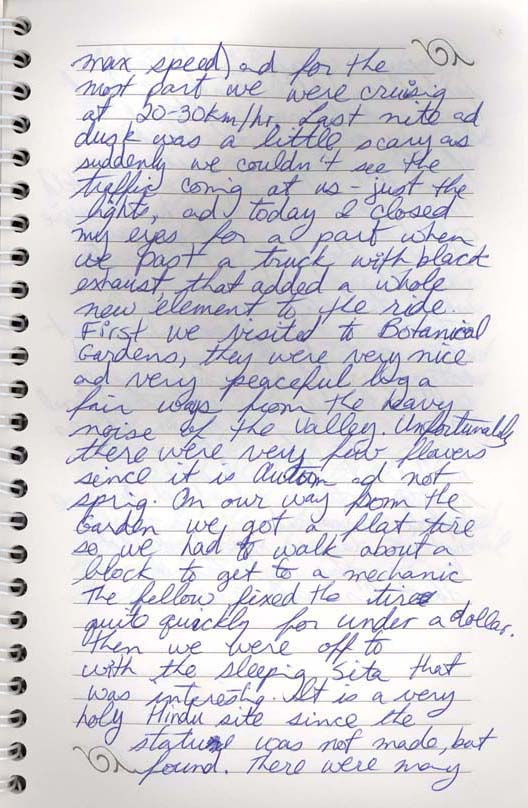 max speed) ad for the
most part we were cruisig
at 20-30km/hr. Last nite ad
dusk was a little scary as
suddenly we couldn't see the
traffic comig at us - just the
lights, ad today I closed
my eyes for a part when
we past a truck with black
exhaust, that added a whole
new element to the ride.
First we visited to Botanical
Gardens, they were very nice
ad very peaceful beg a
fair ways from the heavy
noise of the Valley. Unfortunately
there were very few flowers
since it is Autum ad not
sprig. On our way from the
Garden we got a flat tire
so we had to walk about a
block to get to a mechanic
The fellow fixed the tire
quite quickly for under a dollar.
Then we were off to
with the Sleeping Sita that
was interestig. It is a very
holy Hindu site since the
statue was not made, but
found. There were many